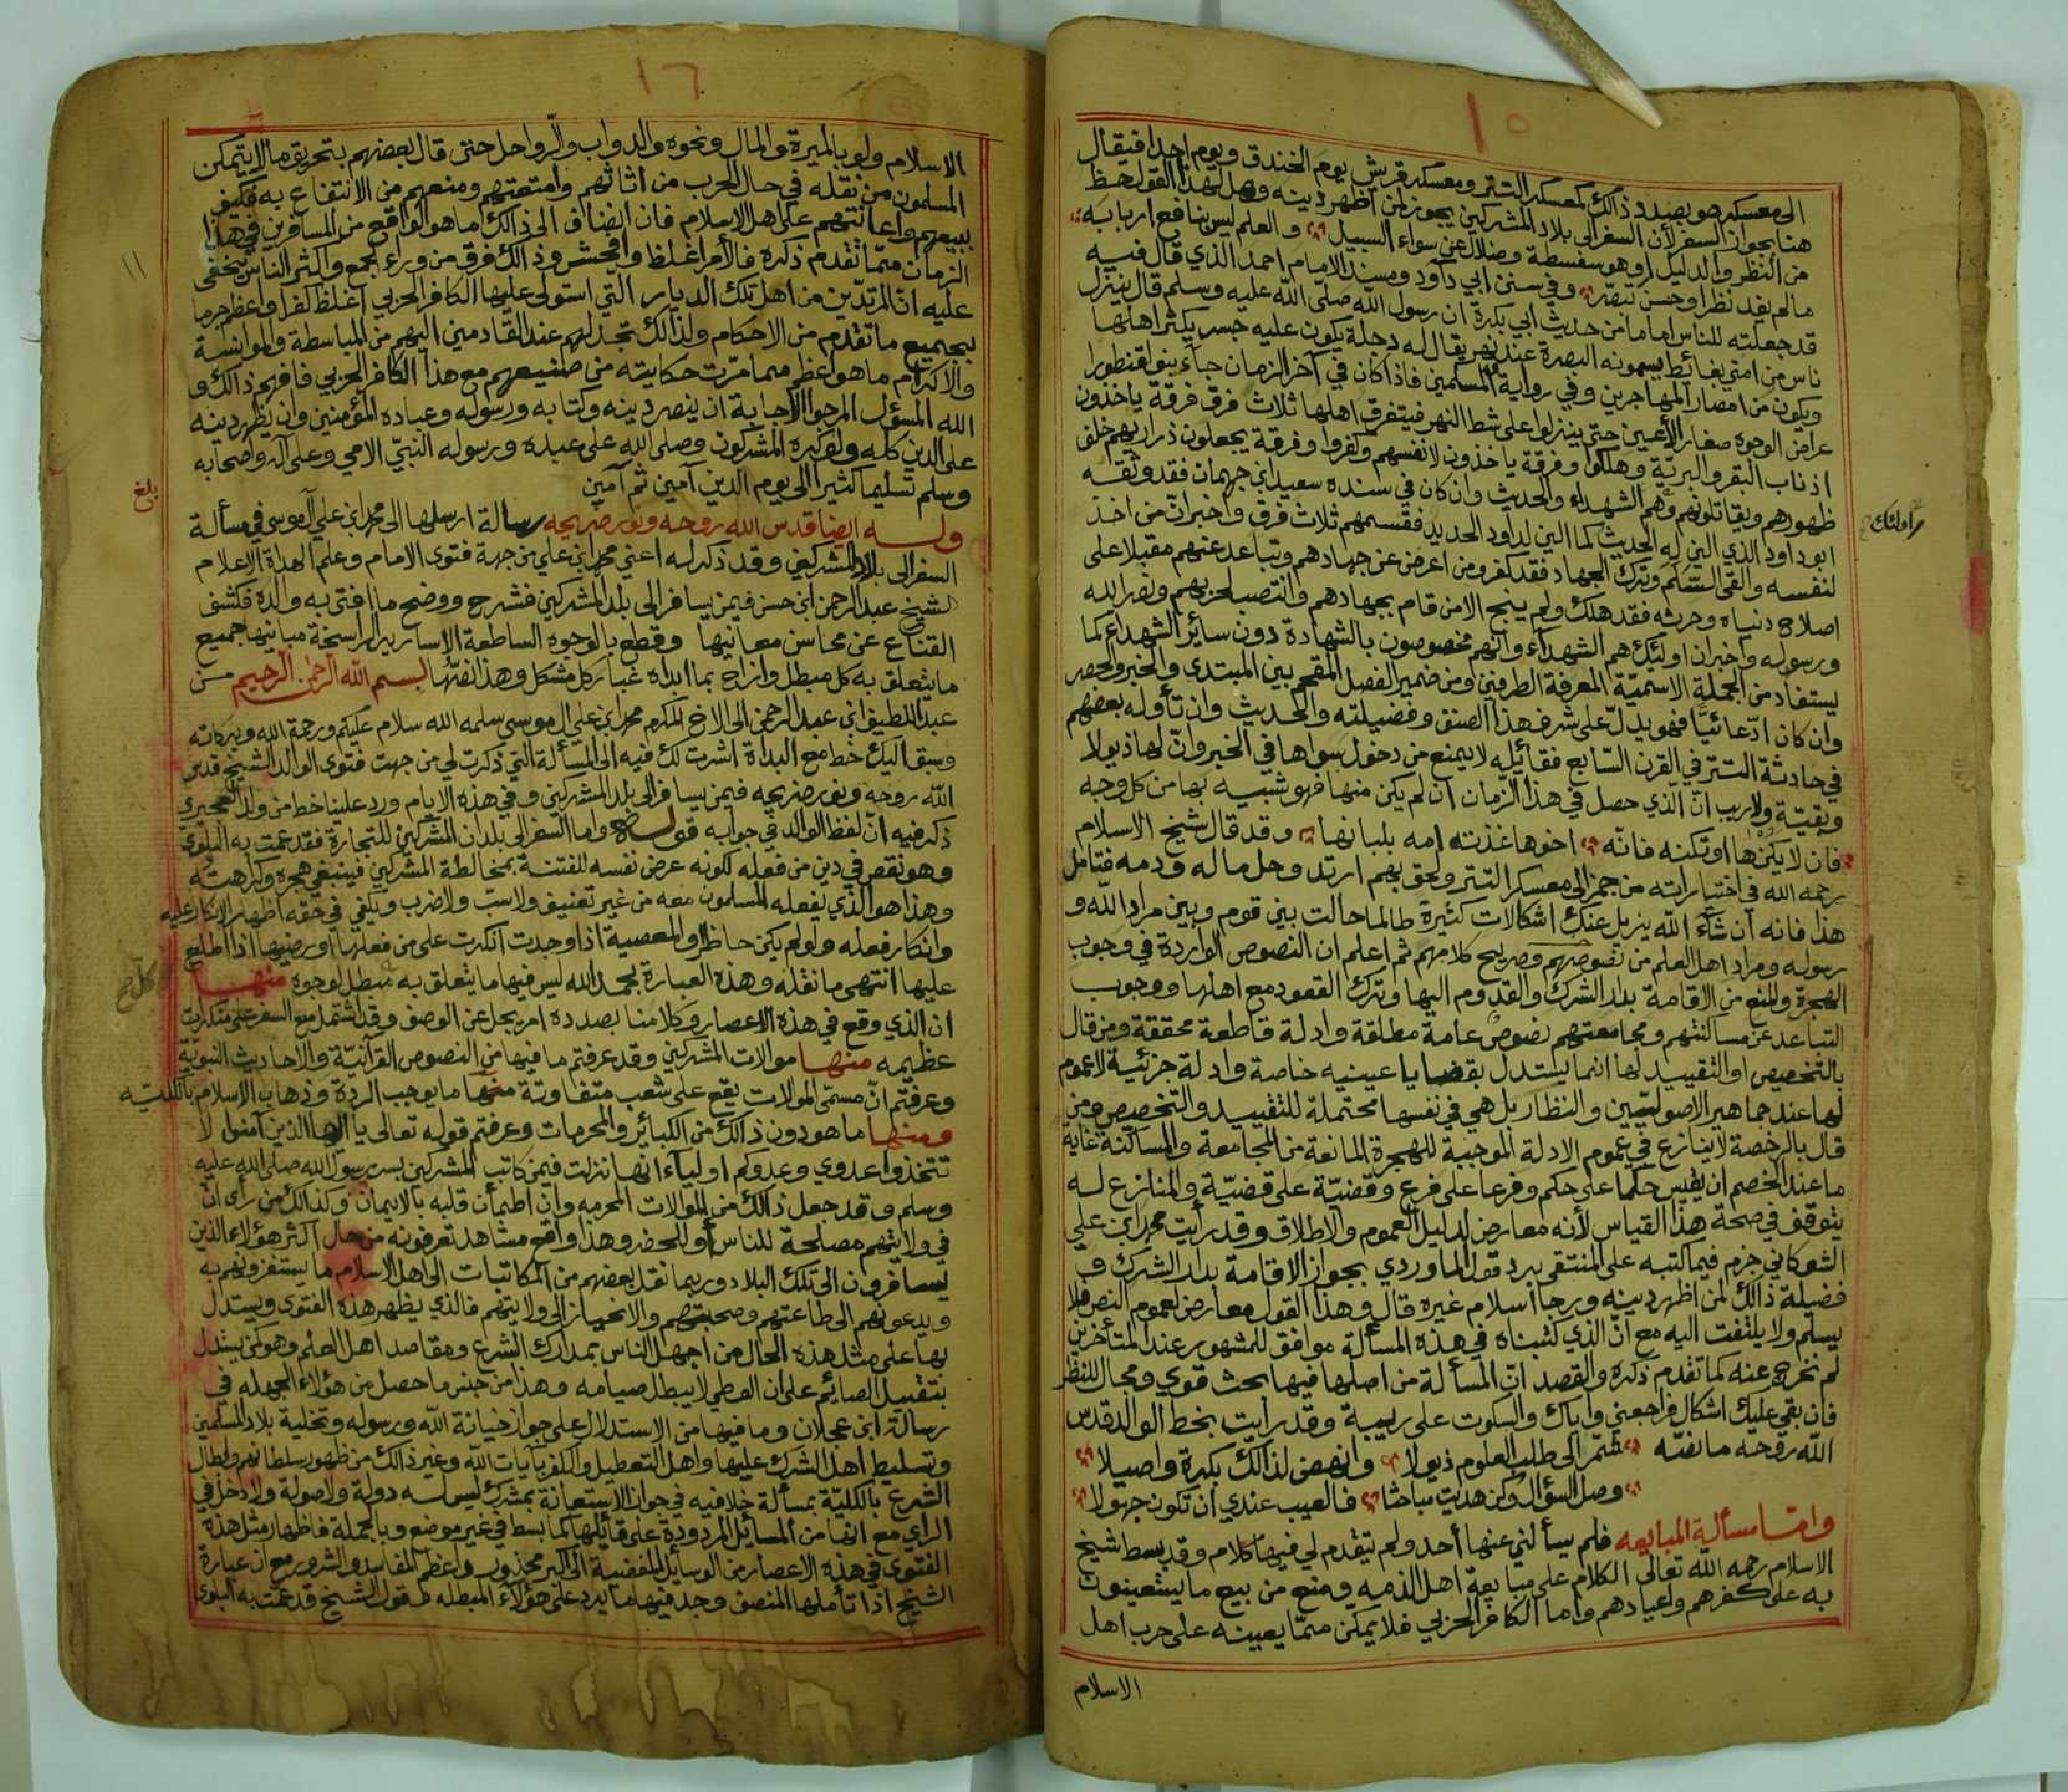 ١٥
الى معسكر هو بصدد ذالك كمعسكر التتر ومعسكر قريش يوم الخندق ويوم احدا فيقال
هنا بجواز السفر لأن السفر الى بلاد المشركين يجوز لمن اظهر دينه وهل لهذا القول حظ
من النظر والدليل او هو سفسطة وضلال عن سواء السبيل والعلم ليس بنافع اربابه
مالم يفد نظرا وحسن تبصر وفي سنن ابي داود ومسند الامام احمد الذي قال فيه
قد جعلته للناس اماما من حديث ابي بكرة ان رسول الله صلى الله عليه وسلم قال ينزل
ناس من امتي بغائط يسمونه البصرة عند نهر يقال له دجلة يكون عليه جسر يكثر اهلها
ويكون من امصار المهاجرين وفي رواية المسلمين فاذا كان في آخر الزمان جاء بنو قنطورا
عراض الوجوه صغار الأعين حتى ينزلوا على شط النهر فيتفرق اهلها ثلاث فرق فرقة ياخذون
اذناب البقر والبرية وهلكوا وفرقة ياخذون لانفسهم وكفروا وفرقة يجعلون ذراريهم خلف
ظهورهم ويقاتلونهم وهم الشهداء والحديث وان كان في سنده سعيد ابن جهمان فقد وثقه
ابو داود الذي الين له الحديث كما الين لداود الحديد فقسمهم ثلاث فرق واخبر ان من اخذ
لنفسه والقى السلم وترك الجهاد فقد كفر ومن اعرض عن جهادهم وتباعد عنهم مقبلا على
اصلاح دنياه وحرثه فقد هلك ولم ينج الا من قام بجهادهم وانتصب لحربهم ونصر لله
ورسوله واخبر ان اوليك هم الشهداء وانهم مخصوصون بالشهادة دون سائر الشهداء كما
يستفاد من الجملة الاسمية المعرفة الطرفين ومن ضمير الفصل المقحم بين المبتدى والخبر والحصر
وان كان ادعائيا فهو يدل على شرف هذا الصنف وفضيلته والحديث وان تأوله بعضهم
في حادثة التتر في القرن السابع فقائله لا يمنع من دخول سواها في الخبر وان لها ذيولا
وبقية ولاريب ان الذي حصل في هذا الزمان ان لم يكن منها فهو شبيه بها من كل وجه
فان لا يكنها او تكنه فانه اخوها غذته امه بلبانها وقد قال شيخ الاسلام
رحمه الله في اختياراته من جمز الى معسكر التتر ولحق بهم ارتد وحل ماله ودمه فتامل
هذا فانه ان شاء الله يزيل عنك اشكالات كثيرة طالما حالت بين قوم وبين مراد الله و
رسوله ومراد اهل العلم من نصوصهم وصريح كلامهم ثم اعلم ان النصوص الواردة في وجوب
الهجرة والمنع من الاقامة بدار الشرك والقدوم اليها وترك القعود مع اهلها ووجوب
التباعد عن مساكنتهم ومجامعتهم نصوص عامة مطلقة وادلة قاطعة محققة ومن قال
بالتخصيص او التقييد لها انما يستدل بقضايا عينيه خاصة وادلة جزئية لا عموم
لها عند جماهير الاصوليين والنظار بل هي في نفسها محتملة للتقييد والتخصيص ومن
قال بالرخصة لا ينازع في عموم الادلة الموجبة للهجرة المانعة من المجامعة والمساكنة غاية
ما عند الخصم ان يقيس حكما على حكم وفرعا على فرع وقضية على قضية والمنازع له
يتوقف في صحة هذا القياس لأنه معارض لدليل العموم والاطلاق وقد رأيت محمد ابن علي
الشوكاني جزم فيما كتبه على المنتقى برد قول الماوردي بجواز الاقامة بدار الشرك و
فضيلة ذالك لمن اظهر دينه ورجا اسلام غيره قال وهذا القول معارض لعموم النص فلا
يسلم ولا يلتفت اليه مع ان الذي كتبناه في هذه المسألة موافق للمشهور عند المتأخرين
لم نخرج عنه كما تقدم ذكره والقصد ان المسألة من اصلها فيها بحث قوي ومجال للنظر
فان بقي عليك اشكال فراجعني واياك والسكوت على ريبية وقد رأيت بخط الوالد قدس
الله روحه ما نصه شمر الى طلب العلوم ذيولا وانهض لذالك بكرة واصيلا
وصل السؤال وكن هديت مباحثا فالعيب عندي ان تكون جهولا
واما مسألة المبايعه فلم يسألني عنها أحد ولم يتقدم لي فيها كلام وقد بسط شيخ
الاسلام رحمه الله تعالى الكلام على مبايعة اهل الذمه ومنع من بيع ما يستعينون
به على كفرهم واعيادهم واما الكافر الحربي فلا يمكن مما يعينه على حرب اهل
الاسلام
واولئك
١٦
الاسلام ولو بالميرة والمال ونحوه والدواب والرواحل حتى قال بعضهم بتحريق ما لا يتمكن
المسلمون من نقله في حال الحرب من اثاثهم وامتعتهم ومنعهم من الانتفاع به فكيف
ببيعهم واعانتهم على اهل الاسلام فان انضاف الى ذالك ما هو الواقع من المسافرين في هذا
الزمان مما تقدم ذكره فالأمر اغلظ وافحش وذالك فرق من وراء الجمع واكثر الناس يخفى
عليه ان المرتدين من اهل تلك الديار التي استولى عليها الكافر الحربي اغلظ كفرا واعظم جرما
بجميع ما تقدم من الاحكام ولذالك تجد لهم عند القادمين اليهم من المباسطة والموانسة
والاكرام ما هو اعظم مما مرت حكايته من صنيعهم مع هذا الكافر الحربي فافهم ذالك و
الله المسؤل المرجوا الاجابة ان ينصر دينه وكتابه ورسوله وعباده المؤمنين وان يظهر دينه
على الدين كله ولو كره المشركون وصلى الله على عبده ورسوله النبي الامي وعلى آله واصحابه
وسلم تسليما كثيرا الى يوم الدين آمين ثم آمين
بلغ
وله ايضا قدس الله روحه ونور ضريحه رسالة ارسلها الى محمد ابن علي آل موسى في مسألة
السفر الى بلاد المشركين وقد ذكر له اعني محمد ابن علي من جهة فتوى الامام وعلم الهداة الاعلام
الشيخ عبد الرحمن ابن حسن فيمن يسافر الى بلد المشركين فشرح ووضح ما افتى به والده فكشف
القناع عن محاسن معانيها وقطع بالوجوه الساطعة الاسارير الراسخة مبانيها جميع
ما يتعلق به كل مبطل وازاح بما ابداه غبار كل مشكل وهذا نصها بسم الله الرحمن الرحيم من
عبد اللطيف ابن عبد الرحمن الى الاخ المكرم محمد ابن علي ال موسى سلمه الله سلام عليكم ورحمة الله وبركاته
وسبق اليك خط مع البداة اشرت لك فيه الى المسألة التي ذكرت لي من جهت فتوى الوالد الشيخ قدس
الله روحه ونور ضريحه فيمن يسافر الى بلد المشركين وفي هذه الايام ورد علينا خط من ولد العجيري
ذكر فيه ان لفظ الوالد في جوابه قوله واما السفر الى بلدان المشركين للتجارة فقد عمت به البلوى
وهو نقص في دين من فعله لكونه عرض نفسه للفتنة بمخالطة المشركين فينبغي هجره وكراهته
وهذا هو الذي يفعله المسلمون معه من غير تعنيف ولا سب ولا ضرب ويكفي في حقه اظهار الانكار عليه
وانكار فعله ولو لم يكن حاظرا والمعصية اذا وجدت انكرت على من فعلها او رضيها اذا اطلع
عليها انتهى ما نقله وهذه العبارة بحمد الله ليس فيها ما يتعلق به مبطل لوجوه منها
ان الذي وقع في هذه الاعصار وكلامنا بصدده امر يجل عن الوصف وقد اشتمل مع السفر على منكرات
عظيمه منها موالات المشركين وقد عرفتم ما فيها من النصوص القرآنية والاحاديث النبوية
وعرفتم ان مسمى الموالات يقع على شعب متفاوتة منها ما يوجب الردة وذهاب الاسلام بالكليه
ومنها ما هو دون ذالك من الكبائر والمحرمات وعرفتم قوله تعالى يا ايها الذين آمنوا لا
تتخذوا عدوي وعدوكم اولياء انها نزلت فيمن كاتب المشركين بسر رسول الله صلى الله عليه
وسلم وقد جعل ذالك من الموالات المحرمه وان اطمأن قلبه بالايمان وكذالك من رأى ان
في ولايتهم مصلحة للناس أو للحضر وهذا واقع مشاهد تعرفونه من حال اكثر هؤلاء الذين
يسافرون الى تلك البلاد وربما نقل بعضهم من المكاتبات الى اهل الاسلام ما يستفزونهم به
ويدعونهم الى طاعتهم وصحبتهم والانحياز الى ولايتهم فالذي يظهر هذه الفتوى ويستدل
بها على مثل هذه الحال من اجهل الناس بمدارك الشرع ومقاصد اهل العلم وهو كمن يستدل
بتقبيل الصائم على ان الوطي لا يبطل صيامه وهذا من جنس ما حصل من هؤلاء الجهله في
رسالة ابن عجلان وما فيها من الاستدلال على جواز خيانة الله ورسوله وتخلية بلاد المسلمين
وتسليط اهل الشرك عليها واهل التعطيل والكفر بآيات الله وغير ذالك من ظهور سلطانهم وابطال
الشرع بالكلية بمسألة خلافيه في جواز الاستعانة بمشرك ليس له دولة ولا صولة ولا دخل في
الراي مع انها من المسايل المردودة على قائلها كما بسط في غير موضع وبالجملة فاظهار مثل هذه
الفتوى في هذه الاعصار من الوسايل المفضية الى اكبر محذور واعظم المفاسد والشرور مع ان عبارة
الشيخ اذا تأملها المنصف وجد فيها ما يرد على هؤلاء المبطله فقول الشيخ قد عمت به البلوى